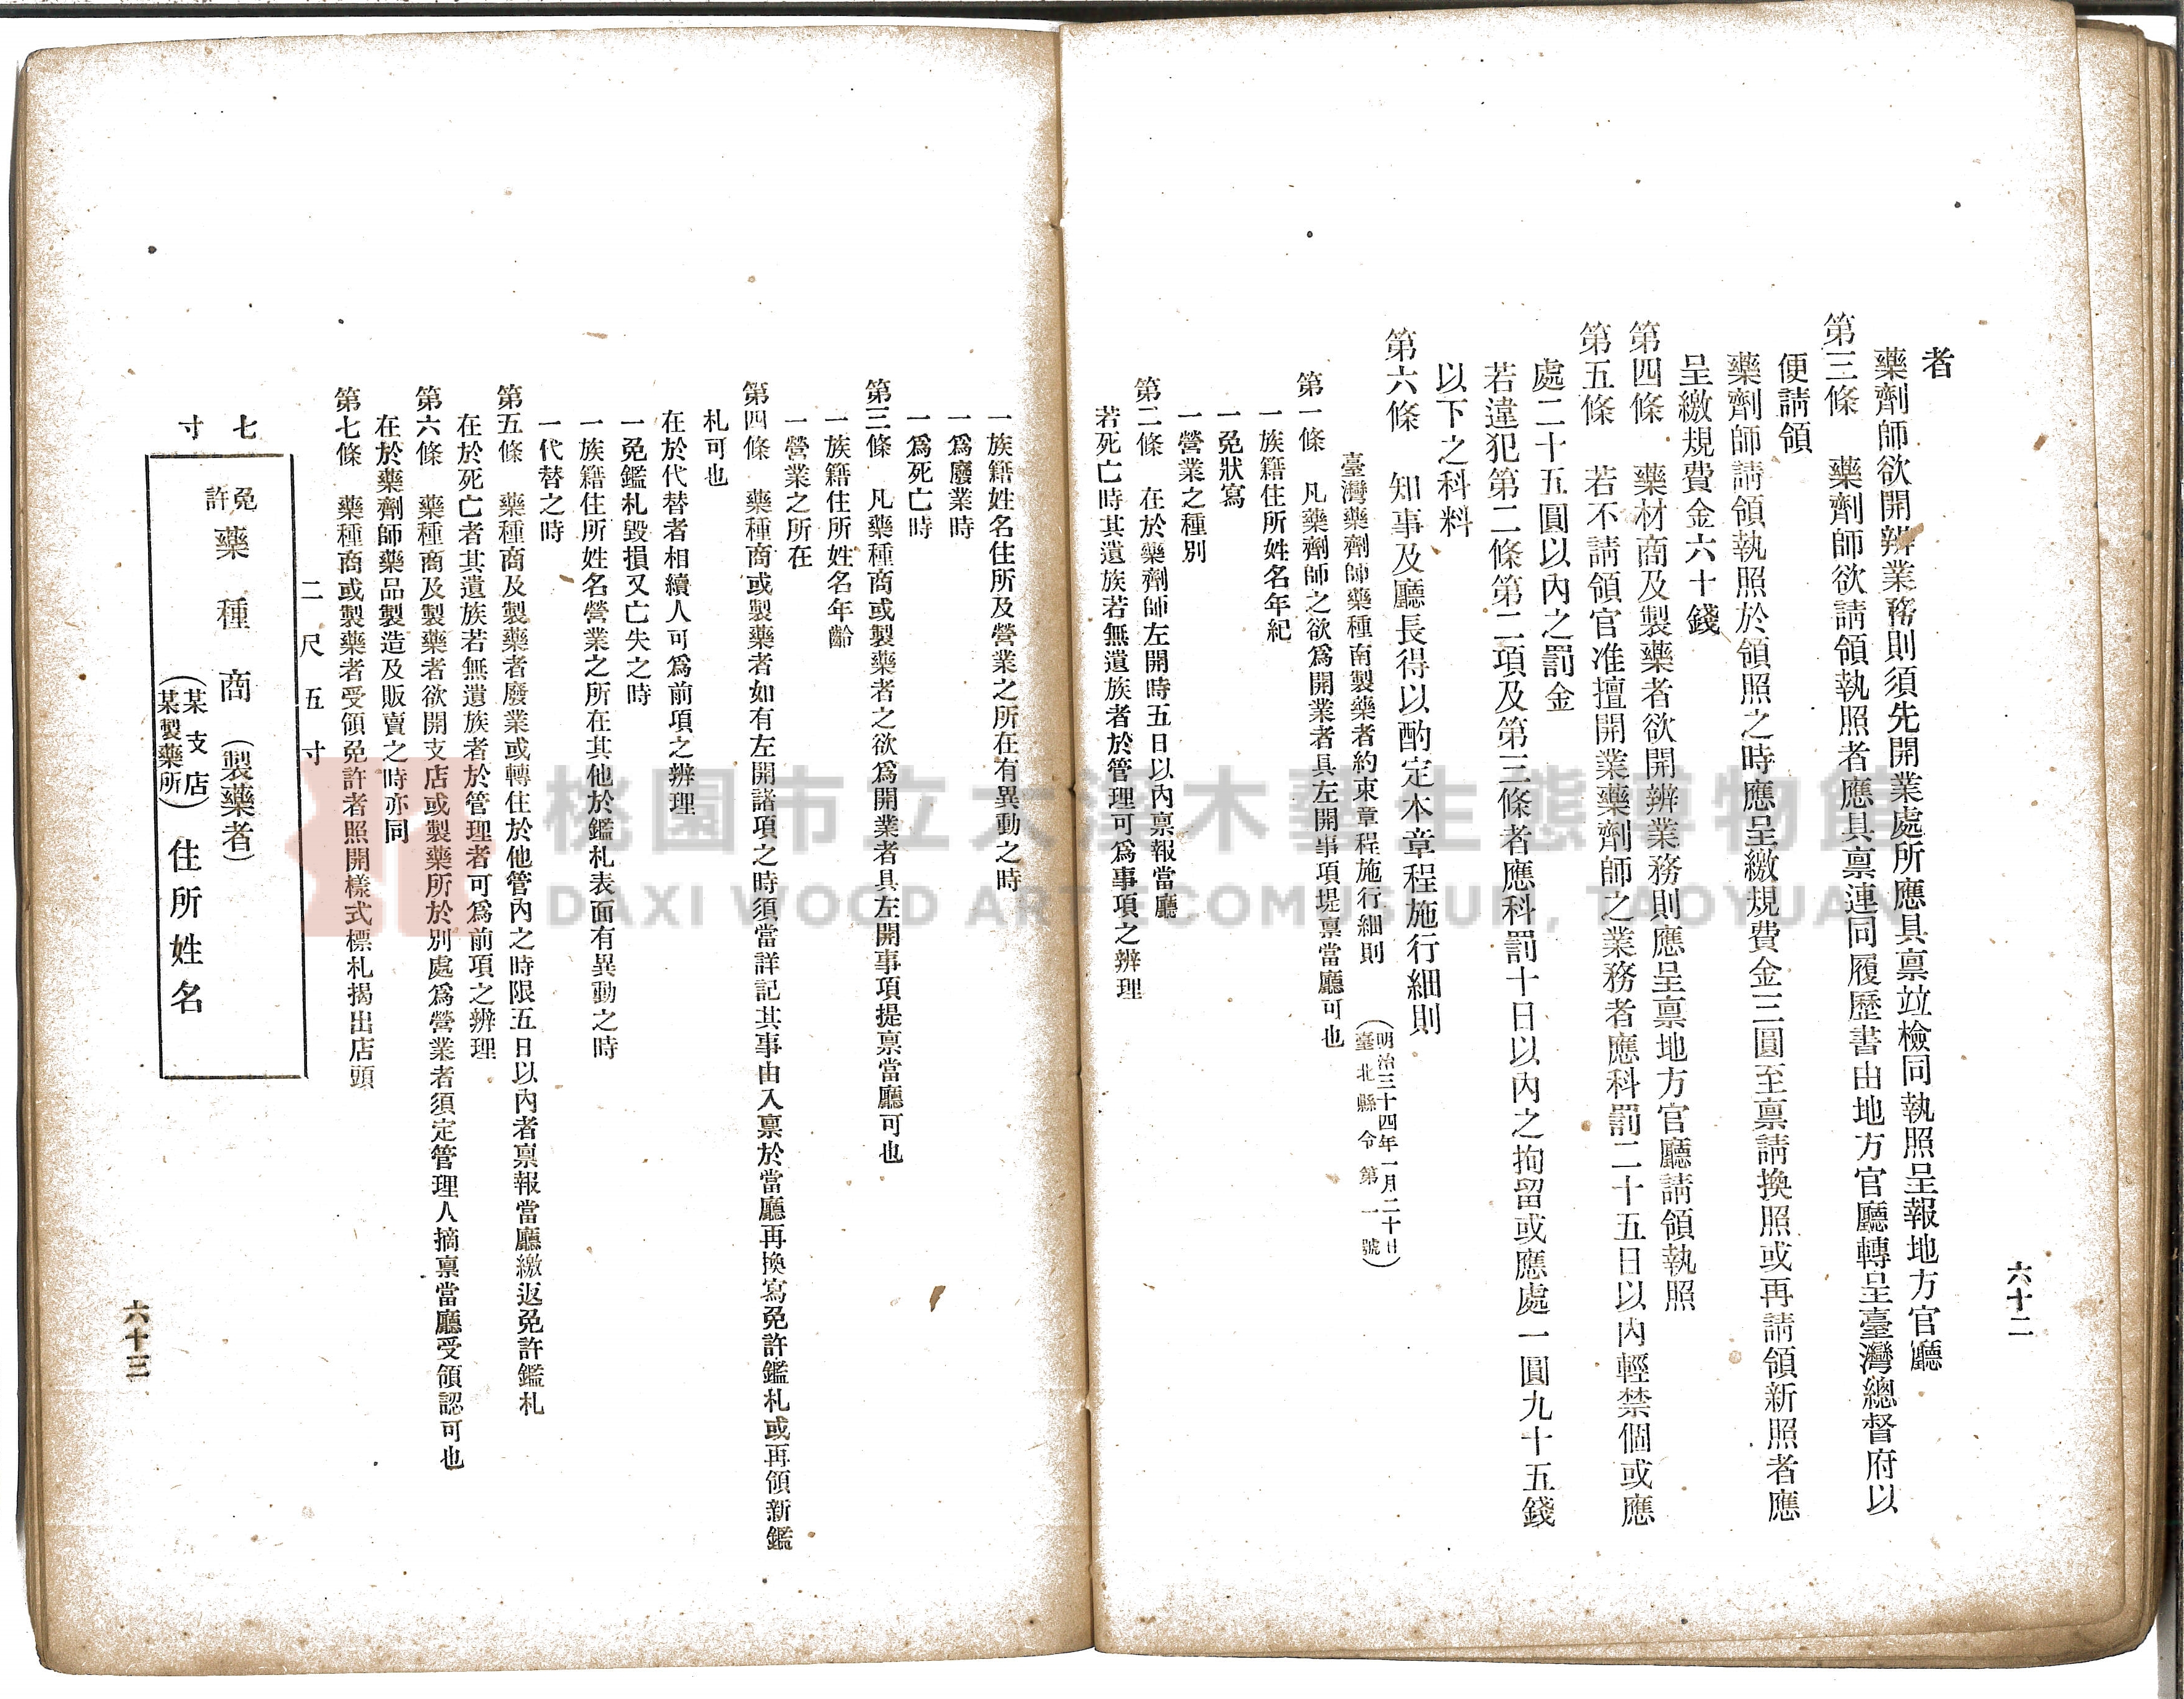 六十二
者
藥劑師欲開辨業務則須先開業處所應具禀竝檢同執照呈報地方官廳
第三條　藥劑師欲請領執照者應具禀連同履歷書由地方官廳轉呈臺灣總督府以
便請領
藥劑師請領執照於領照之時應呈繳規費金三圓至禀請換照或再請領新照者應
呈繳規費金六十錢
第四條　藥材商及製藥者欲開辨業務則應呈禀地方官廳請領執照
第五條　若不請領官准擅開業藥劑師之業務者應科罰二十五日以內輕禁個或應
處二十五圓以內之罰金
若違犯第二條第二項及第三條者應科罰十日以內之拘留或應處一圓九十五錢
以下之科料
第六條　知事及廳長得以酌定本章程施行細則
臺灣藥劑師藥種南製藥者約束章程施行細則（明治三十四年一月二十日
臺北縣令第一號）
第一條　凡藥劑師之欲爲開業者具左開事項堤禀當廳可也
一族籍住所姓名年紀
一免狀寫
一營業之種別
第二條　在於藥劑師左開時五日以內禀報當廳
若死亡時其遺族若無遺族者於管理可爲事項之辨理
一族籍姓名住所及營業之所在有異動之時
一爲廢業時
一爲死亡時
第三條　凡藥種商或製藥者之欲爲開業者具左開事項提禀當廳可也
一族籍住所姓名年齡
一營業之所在
第四條　藥種商或製藥者如有左開諸項之時須當詳記其事由入禀於當廳再換寫免許鑑札或再領新鑑
札可也
在於代替者相續人可爲前項之辨理
一免鑑札毀損又亡失之時
一族籍住所姓名營業之所在其他於鑑札表面有異動之時
一代替之時
第五條　藥種商及製藥者廢業或轉住於他管內之時限五日以內者禀報當廳繳返免許鑑札
在於死亡者其遺族若無遺族者於管理者可爲前項之辨理
第六條　藥種商及製藥者欲開支店或製藥所於別處爲營業者須定管理人摘禀當廳受領認可也
在於藥劑師藥品製造及販賣之時亦同
第七條　藥種商或製藥者受領免許者照開樣式標札揭出店頭
二尺五寸
七寸
免許
藥種商（製藥者）
（某支店
某製藥所）住所姓名
六十三
桃園市立大溪木藝生態博物館
DAXI WOOD ART ECOMUSEUM, TAOYUAN